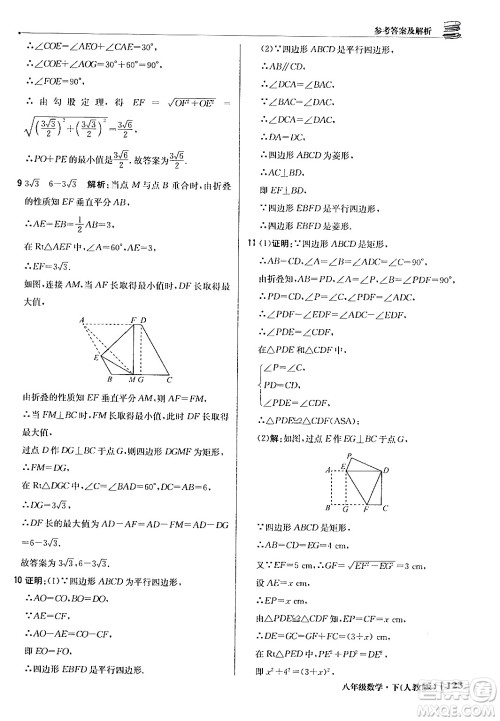 参考答案及解析
∴∠COE=∠AEO+∠CAE=60°
∴∠COF=∠AOG=30°
∴∠COE+∠AOG=∠FOE=90°
∴∠FOE=90°
∴由勾股定理,得EF=√(OF²+OE²)=
√((3√3/2)²+(3√3/2)²)=3√6/2
∴PO+PE的最小值是3√6/2.故答案为3√6/2.
9 3√3 6-3√3 解析:当点M与点B重合时,由折叠
的性质知EF垂直平分AB,
∴AE=EB=1/2 AB=3
在Rt△AEF中,∠A=60°,AE=3
∴EF=3√3.
如图,连接AM,当AM长取得最大值时,DF长取得最
大值,
A F D
E
B M G C
由折叠的性质知EF垂直平分AM,则AF=FM
∴当FM⊥BC时,FM长取得最小值,此时DF长取得
最大值,
过点D作DG⊥BC于点G,则四边形DGMF为矩形,
∴FM=DG,
在Rt△DGC中,∠C=∠A=60°,DC=AB=6
∴DG=3√3.
∴DF长的最大值为AD-AF=AD-FM=AD-DG=
6-3√3.
故答案为3√3,6-3√3.
10 证明:(1)∵四边形ABCD为平行四边形,
∴AO=CO,BO=DO
∵AE=CF,
∴AO-AE=CO-CF
即EO=FO,
∴四边形EBFD是平行四边形.
(2)∵四边形ABCD是平行四边形,
∴AB∥CD
∴∠DCA=∠BAC
∵∠BAC=∠DAC
∴∠DCA=∠DAC
∴DA=DC
∴四边形ABCD为菱形,
∴AC⊥BD
即EF⊥BD,
∵四边形EBFD是平行四边形,
∴四边形EBFD是菱形.
11 (1)证明:∵四边形ABCD是矩形,
∴AB=CD,∠A=∠B=∠ADC=∠C=90°
由折叠知,AB=PD,∠A=∠P,∠B=∠PDF=90°
∴PD=CD,∠P=∠C,∠PDF=∠ADC
∴∠PDF-∠EDF=∠ADC-∠EDF
∴∠PDE=∠CDF,
在△PDE和△CDF中,
∠P=∠C,
PD=CD,
∠PDE=∠CDF,
∴△PDE≌△CDF(ASA);
(2)解:如图,过点E作EG⊥BC于点G,
P
A E D
B G F C
∴EG=CD=4 cm
又∵EF=5 cm,∴GF=√(EF²-EG²)=3 cm
设AE=x cm,∴EP=x cm
由△PDE≌△CDF知,EP=CF=x cm
∴DE=GC=GF+FC=(3+x) cm
在Rt△PED中,PE²+PD²=DE²
即x²+4²=(3+x)²
八年级数学·下(人教版) 123